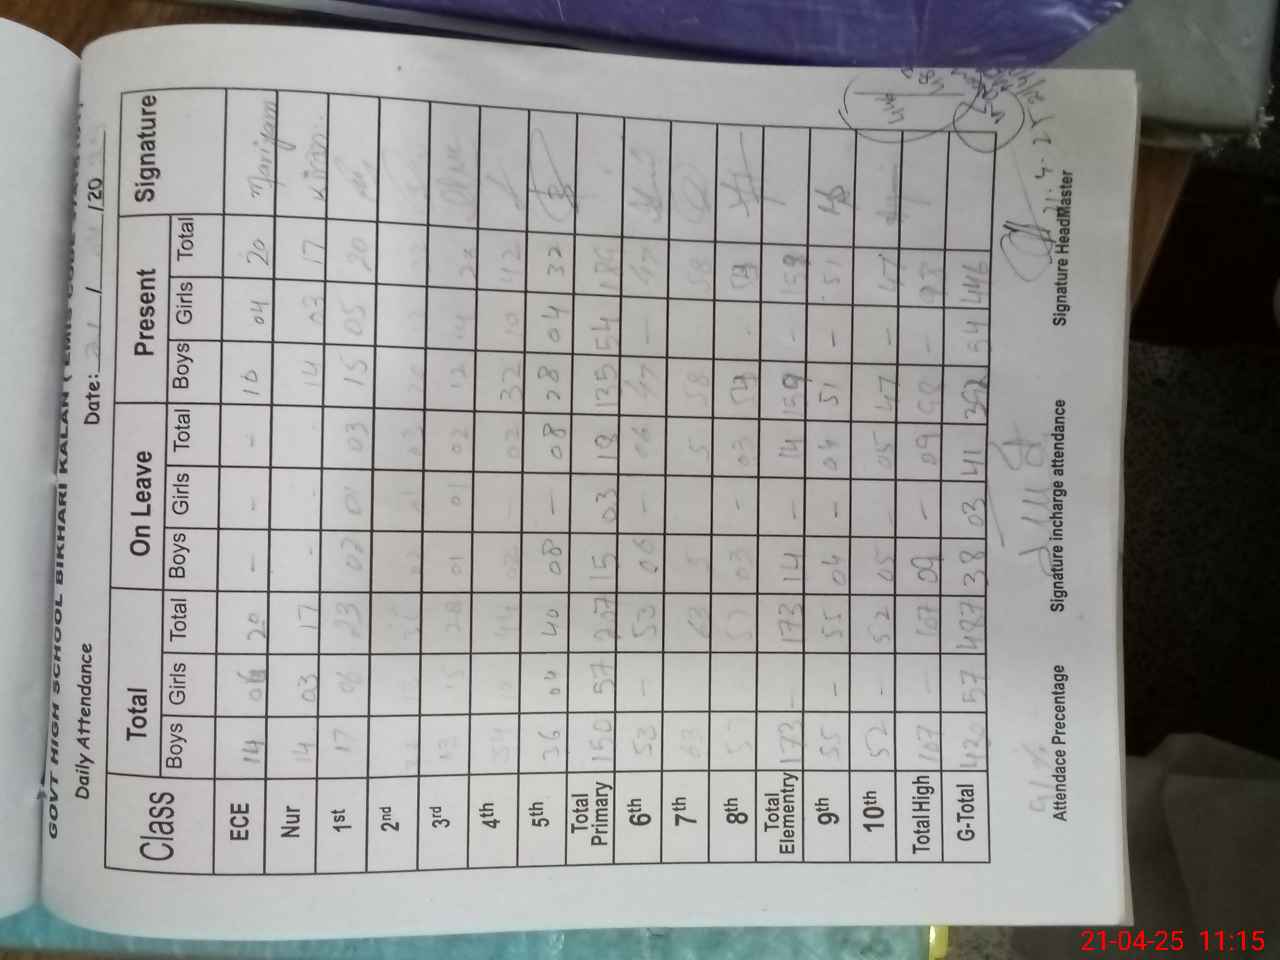 GOVT HIGH SCHOOL BIKHARI KALAN (EMIS CODE
Daily Attendance Date: 21 / /20
Class Total On Leave Present Signature
Boys Girls Total Boys Girls Total Boys Girls Total
ECE 14 20 - - - 04 20 Mariyam
Nur 14 03 17 - 14 03 17 Kiran
1st 17 06 23 02 01 03 15 05 20
2nd
3rd 13 15 28 01 01 02 12 14
4th 34 10 44 02 - 02 32 10 42
5th 36 04 40 08 - 08 28 04 32
Total Primary 150 57 207 15 03 18 135 54 189
6th 53 - 53 06 - 06 47 - 47
7th 63 63 5 5 58 58
8th 57 57 03 - 03 54 54
Total Elementry 173 - 173 14 - 14 159 - 159
9th 55 - 55 04 - 04 51 - 51
10th 52 - 52 05 - 05 47 - 47
Total High 107 - 107 09 - 09 98 - 98
G-Total 57 487 38 03 41 54 446
91%
Attendace Precentage Signature incharge attendance Signature HeadMaster
21-04-25 11:15